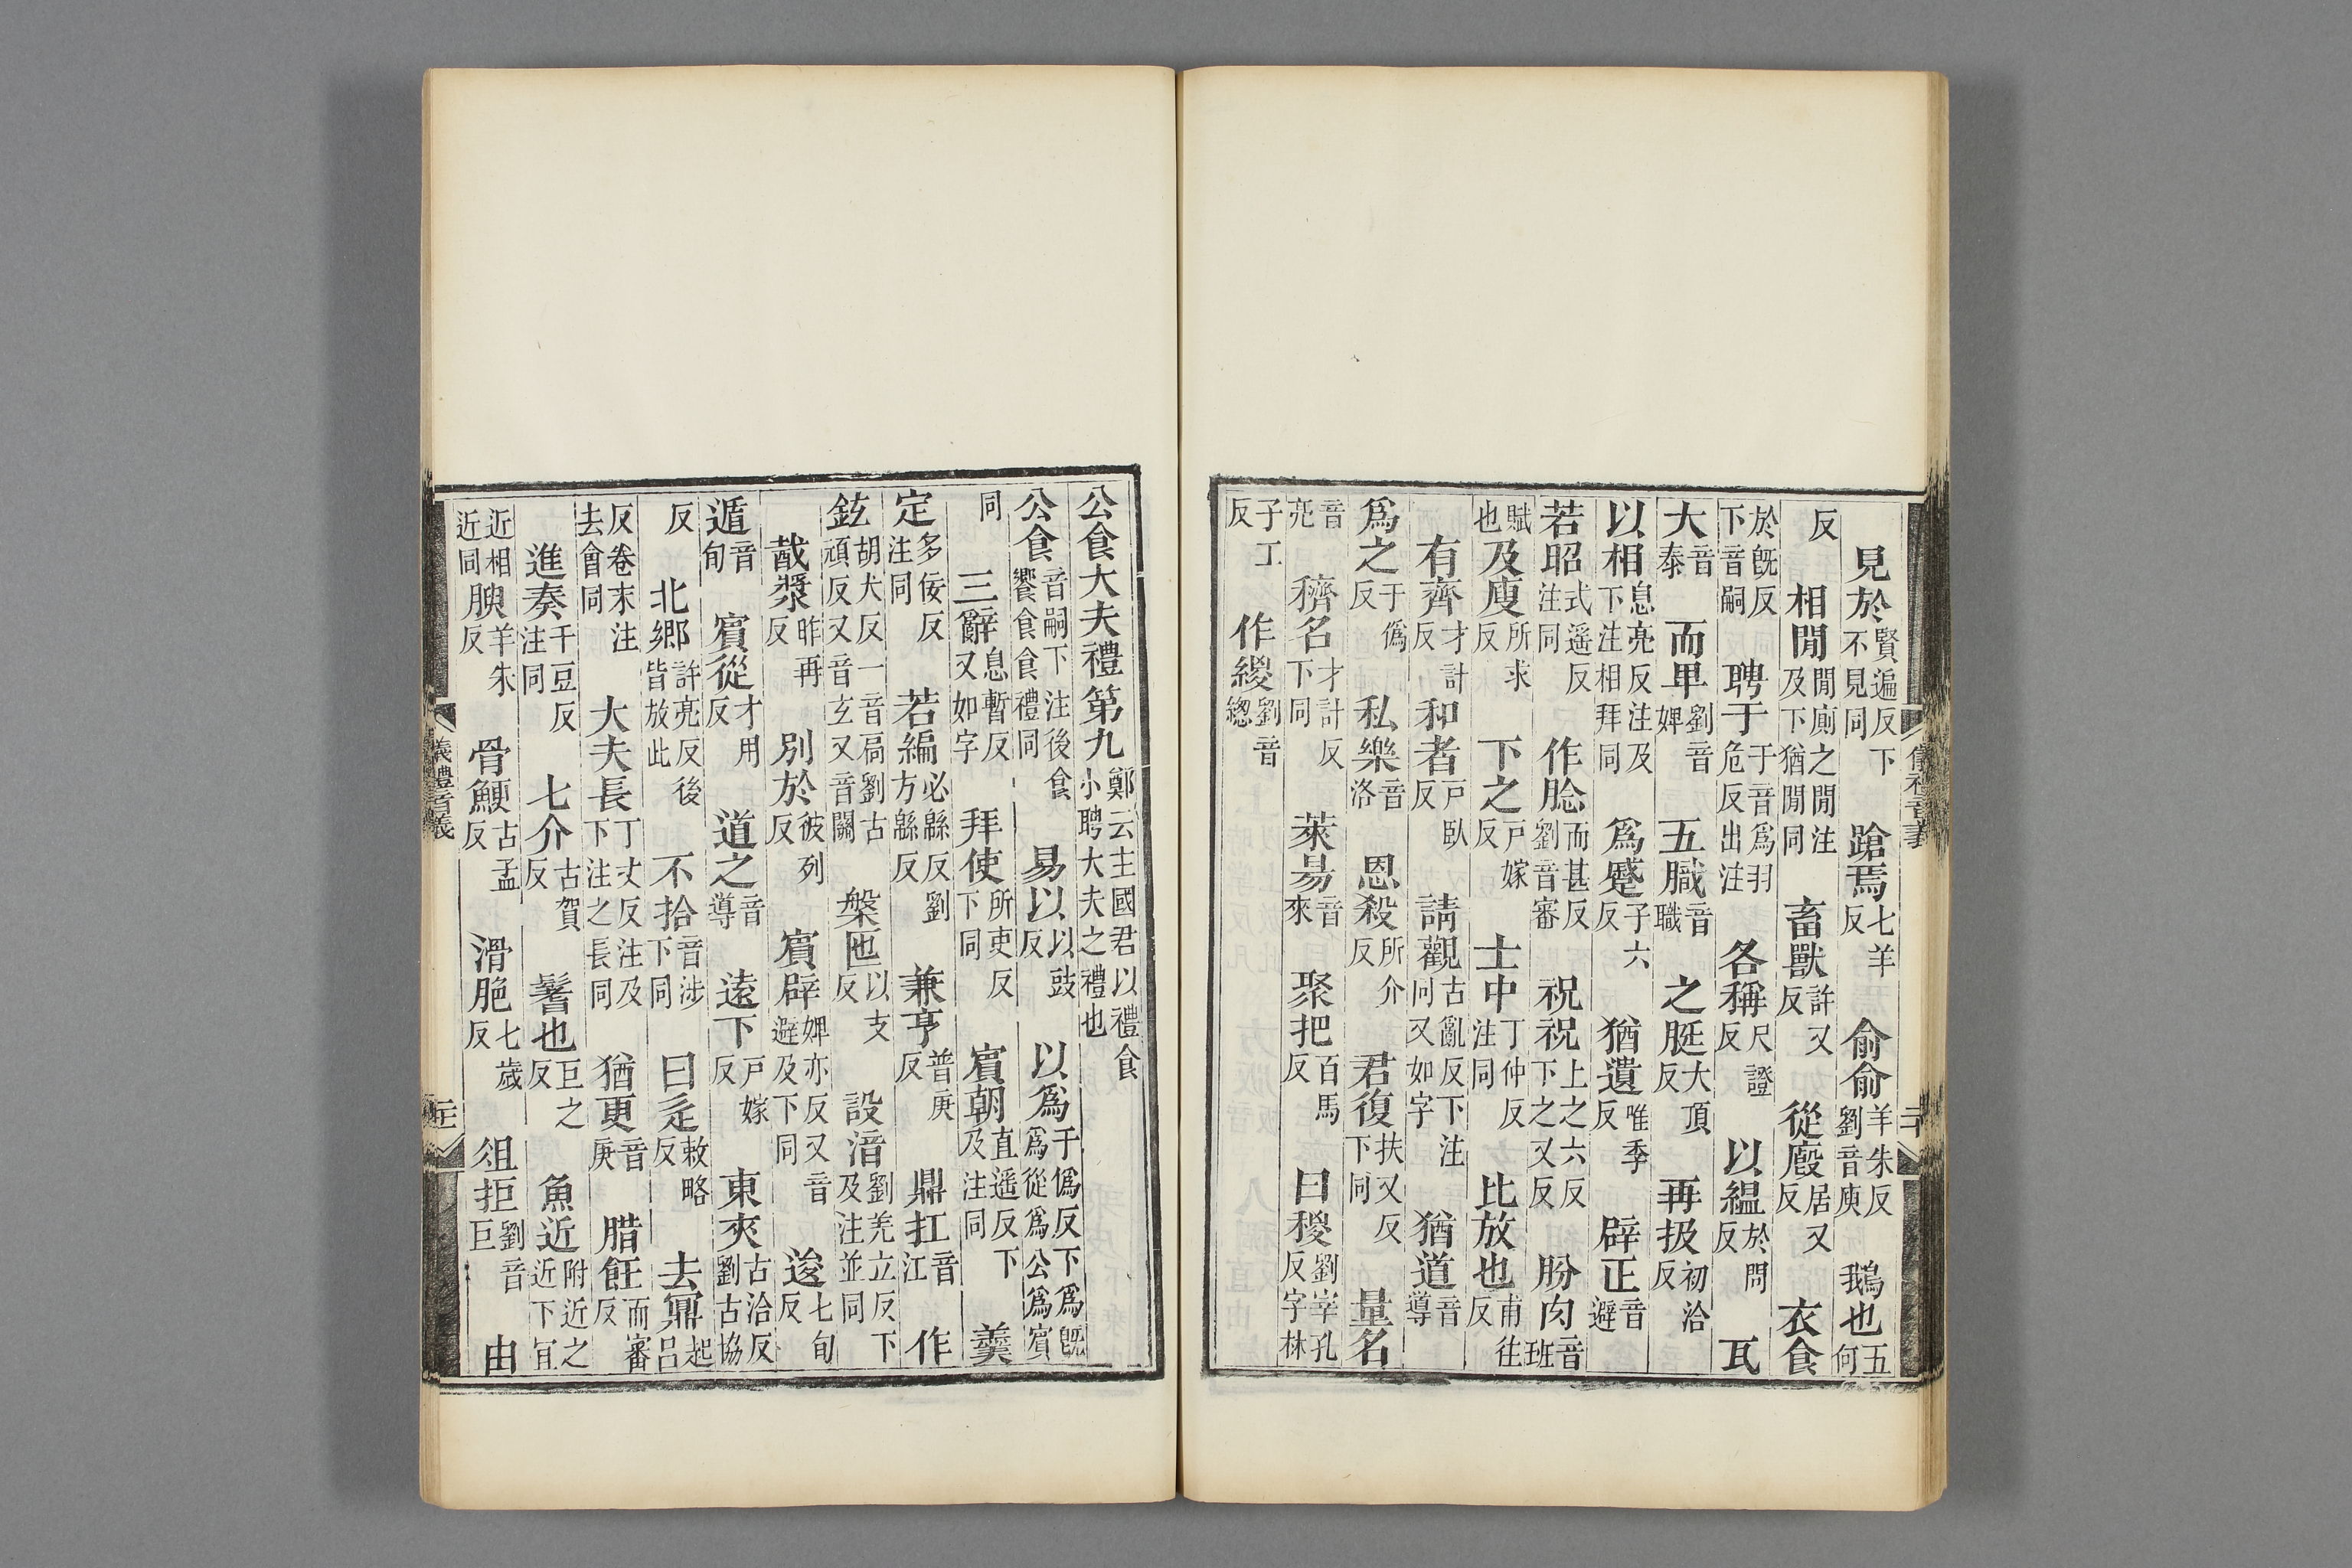 見於賢遍反下不見同 蹌焉七羊反 俞俞羊朱反劉音庾 鵝也五何
反 相閒閒廁之閒注及下猶閒同 畜獸許又反 從廄居又反 衣食
於既反下音嗣 聘于于音爲羽危反出注 各稱尺證反 以緼於問反 瓦
大音泰 而卑劉音婢 五膱音職 之脡大頂反 再扱初洽反
以相息亮反注及下注相拜同 爲蹙子六反 猶遺唯季反 辟正音避
若昭式遥反注同 作腍而甚反劉音審 祝祝上之六反下之又反 肦肉音班
賦也及廋所求反 下之戶嫁反 士中丁仲反注同 比放也甫往反
有齊才計反 和者戸臥反 請觀古亂反下注同又如字 猶道音導
爲之于僞反 私樂音洛 恩殺所介反 君復扶又反下同 量名
音亮 穧名才計反下同 萊昜音來 聚把百馬反 曰稯劉宰孔反字林
子工反 作緵劉音緫
儀禮音義
二十
公食大夫禮第九鄭云主國君以禮食小聘大夫之禮也
公食音嗣下注後食饗食食禮同 易以以豉反 以爲于僞反下爲既爲從爲公爲賓
同 三辭息暫反又如字 拜使所吏反下同 賓朝直遥反下及注同 羹
定多佞反注同 若編必緜反劉方緜反 兼亨普庚反 鼎扛音江 作
鉉胡犬反一音扃劉古頑反又音玄又音關 槃匜以支反 設湆劉羌立反下及注並同
蔵漿昨再反 別於彼列反 賓辟婢亦反又音避及下同 逡七旬反
遁音旬 賓從才用反 道之音導 遠下戸嫁反 東夾古洽反劉古協
反 北鄉許亮反後皆放此 不拾音涉下同 曰辵敕略反 去鼏起呂
反卷末注去會同 大夫長丁丈反注及下注之長同 猶更音庚 腊飪而審反
進奏千豆反注同 七介古賀反 鬐也巨之反 魚近附近之近下宜
近相近同 腴羊朱反 骨鯁古孟反 滑脃七歲反 俎拒劉音巨 由
儀禮音義
二十一